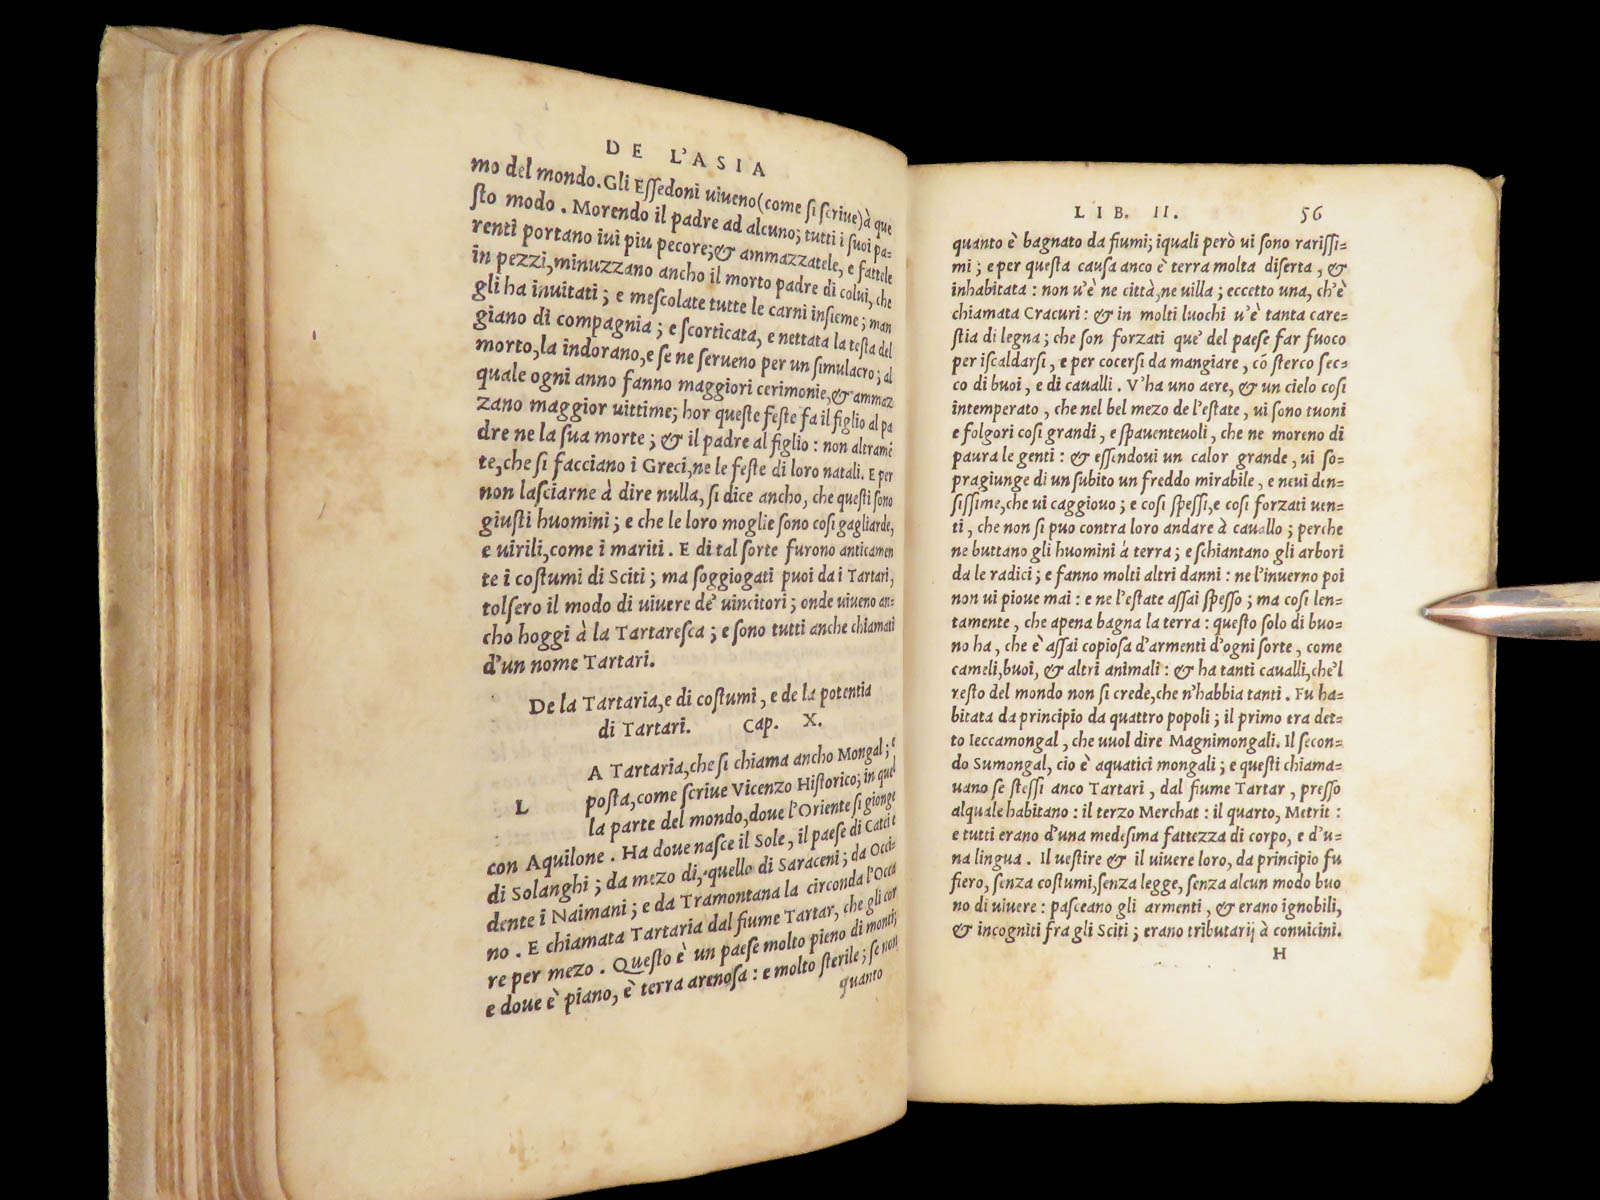 DE L'ASIA
mo del mondo. Gli Essedoni uiueno (come si scriue) à que
sto modo. Morendo il padre ad alcuno; tutti i suoi pa-
renti portano iui piu pecore; & ammazzatele, e fattele
in pezzi, minuzzano ancho il morto padre di colui, che
gli ha inuitati; e mescolate tutte le carni insieme; man
giano di compagnia; e scorticata, e nettata la testa del
morto, la indorano, e se ne serueno per un simulacro; al
quale ogni anno fanno maggiori cerimonie, & ammaz
zano maggior uittime; hor queste feste fa il figlio al pa
dre ne la sua morte; & il padre al figlio: non altramē
te, che si facciano i Greci, ne le feste di loro natali. E per
non lasciarne à dire nulla, si dice ancho, che questi sono
giusti huomini; e che le loro moglie sono cosi gagliarde,
e uirili, come i mariti. E di tal sorte furono anticamen
te i costumi di Sciti; ma soggiogati puoi da i Tartari,
tolsero il modo di uiuere de' uincitori; onde uiueno an-
cho hoggi à la Tartaresca; e sono tutti anche chiamati
d'un nome Tartari.
De la Tartaria, e di costumi, e de la potentia
di Tartari. Cap. X.
L A Tartaria, che si chiama ancho Mongal; e
posta, come scriue Vicenzo Historico; in quel
la parte del mondo, doue l'Oriente si gionge
con Aquilone. Ha doue nasce il Sole, il paese di Catei e
di Solanghi; da mezo di, quello di Saraceni; da Occi-
dente i Naimani; e da Tramontana la circonda l'Ocea
no. E chiamata Tartaria dal fiume Tartar, che gli cor
re per mezo. Questo è un paese molto pieno di monti;
e doue è piano, è terra arenosa: e molto sterile; se non
quanto
LIB. II. 56
quanto è bagnato da fiumi; iquali però ui sono rarissi-
mi; e per questa causa anco è terra molta diserta, &
inhabitata: non u'è ne città, ne uilla; eccetto una, ch'è
chiamata Cracuri: & in molti luochi u'è tanta care-
stia di legna; che son forzati que' del paese far fuoco
per iscaldarsi, e per cocersi da mangiare, cō sterco sec-
co di buoi, e di caualli. V'ha uno aere, & un cielo cosi
intemperato, che nel bel mezo de l'estate, ui sono tuoni
e folgori cosi grandi, e spauenteuoli, che ne moreno di
paura le genti: & essendoui un calor grande, ui so-
pragiunge di un subito un freddo mirabile, e neui den-
sissime, che ui caggiouo; e cosi spessi, e cosi forzati uen-
ti, che non si puo contra loro andare à cauallo; perche
ne buttano gli huomini à terra; e schiantano gli arbori
da le radici; e fanno molti altri danni: ne l'inuerno poi
non ui pioue mai: e ne l'estate assai spesso; ma cosi len-
tamente, che apena bagna la terra: questo solo di buo-
no ha, che è assai copiosa d'armenti d'ogni sorte, come
cameli, buoi, & altri animali: & ha tanti caualli, che'l
resto del mondo non si crede, che n'habbia tanti. Fu ha-
bitata da principio da quattro popoli; il primo era det-
to Ieccamongal, che uuol dire Magnimongali. Il secon-
do Sumongal, cio è aquatici mongali; e questi chiama-
uano se stessi anco Tartari, dal fiume Tartar, presso
al quale habitano: il terzo Merchat: il quarto, Metrit:
e tutti erano d'una medesima fattezza di corpo, e d'u-
na lingua. Il uestire & il uiuere loro, da principio fu
fiero, senza costumi, senza legge, senza alcun modo buo
no di uiuere: pasceano gli armenti, & erano ignobili,
& incogniti fra gli Sciti; erano tributarij à conuicini.
H